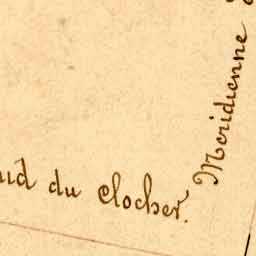 du clocher.
Meridienne